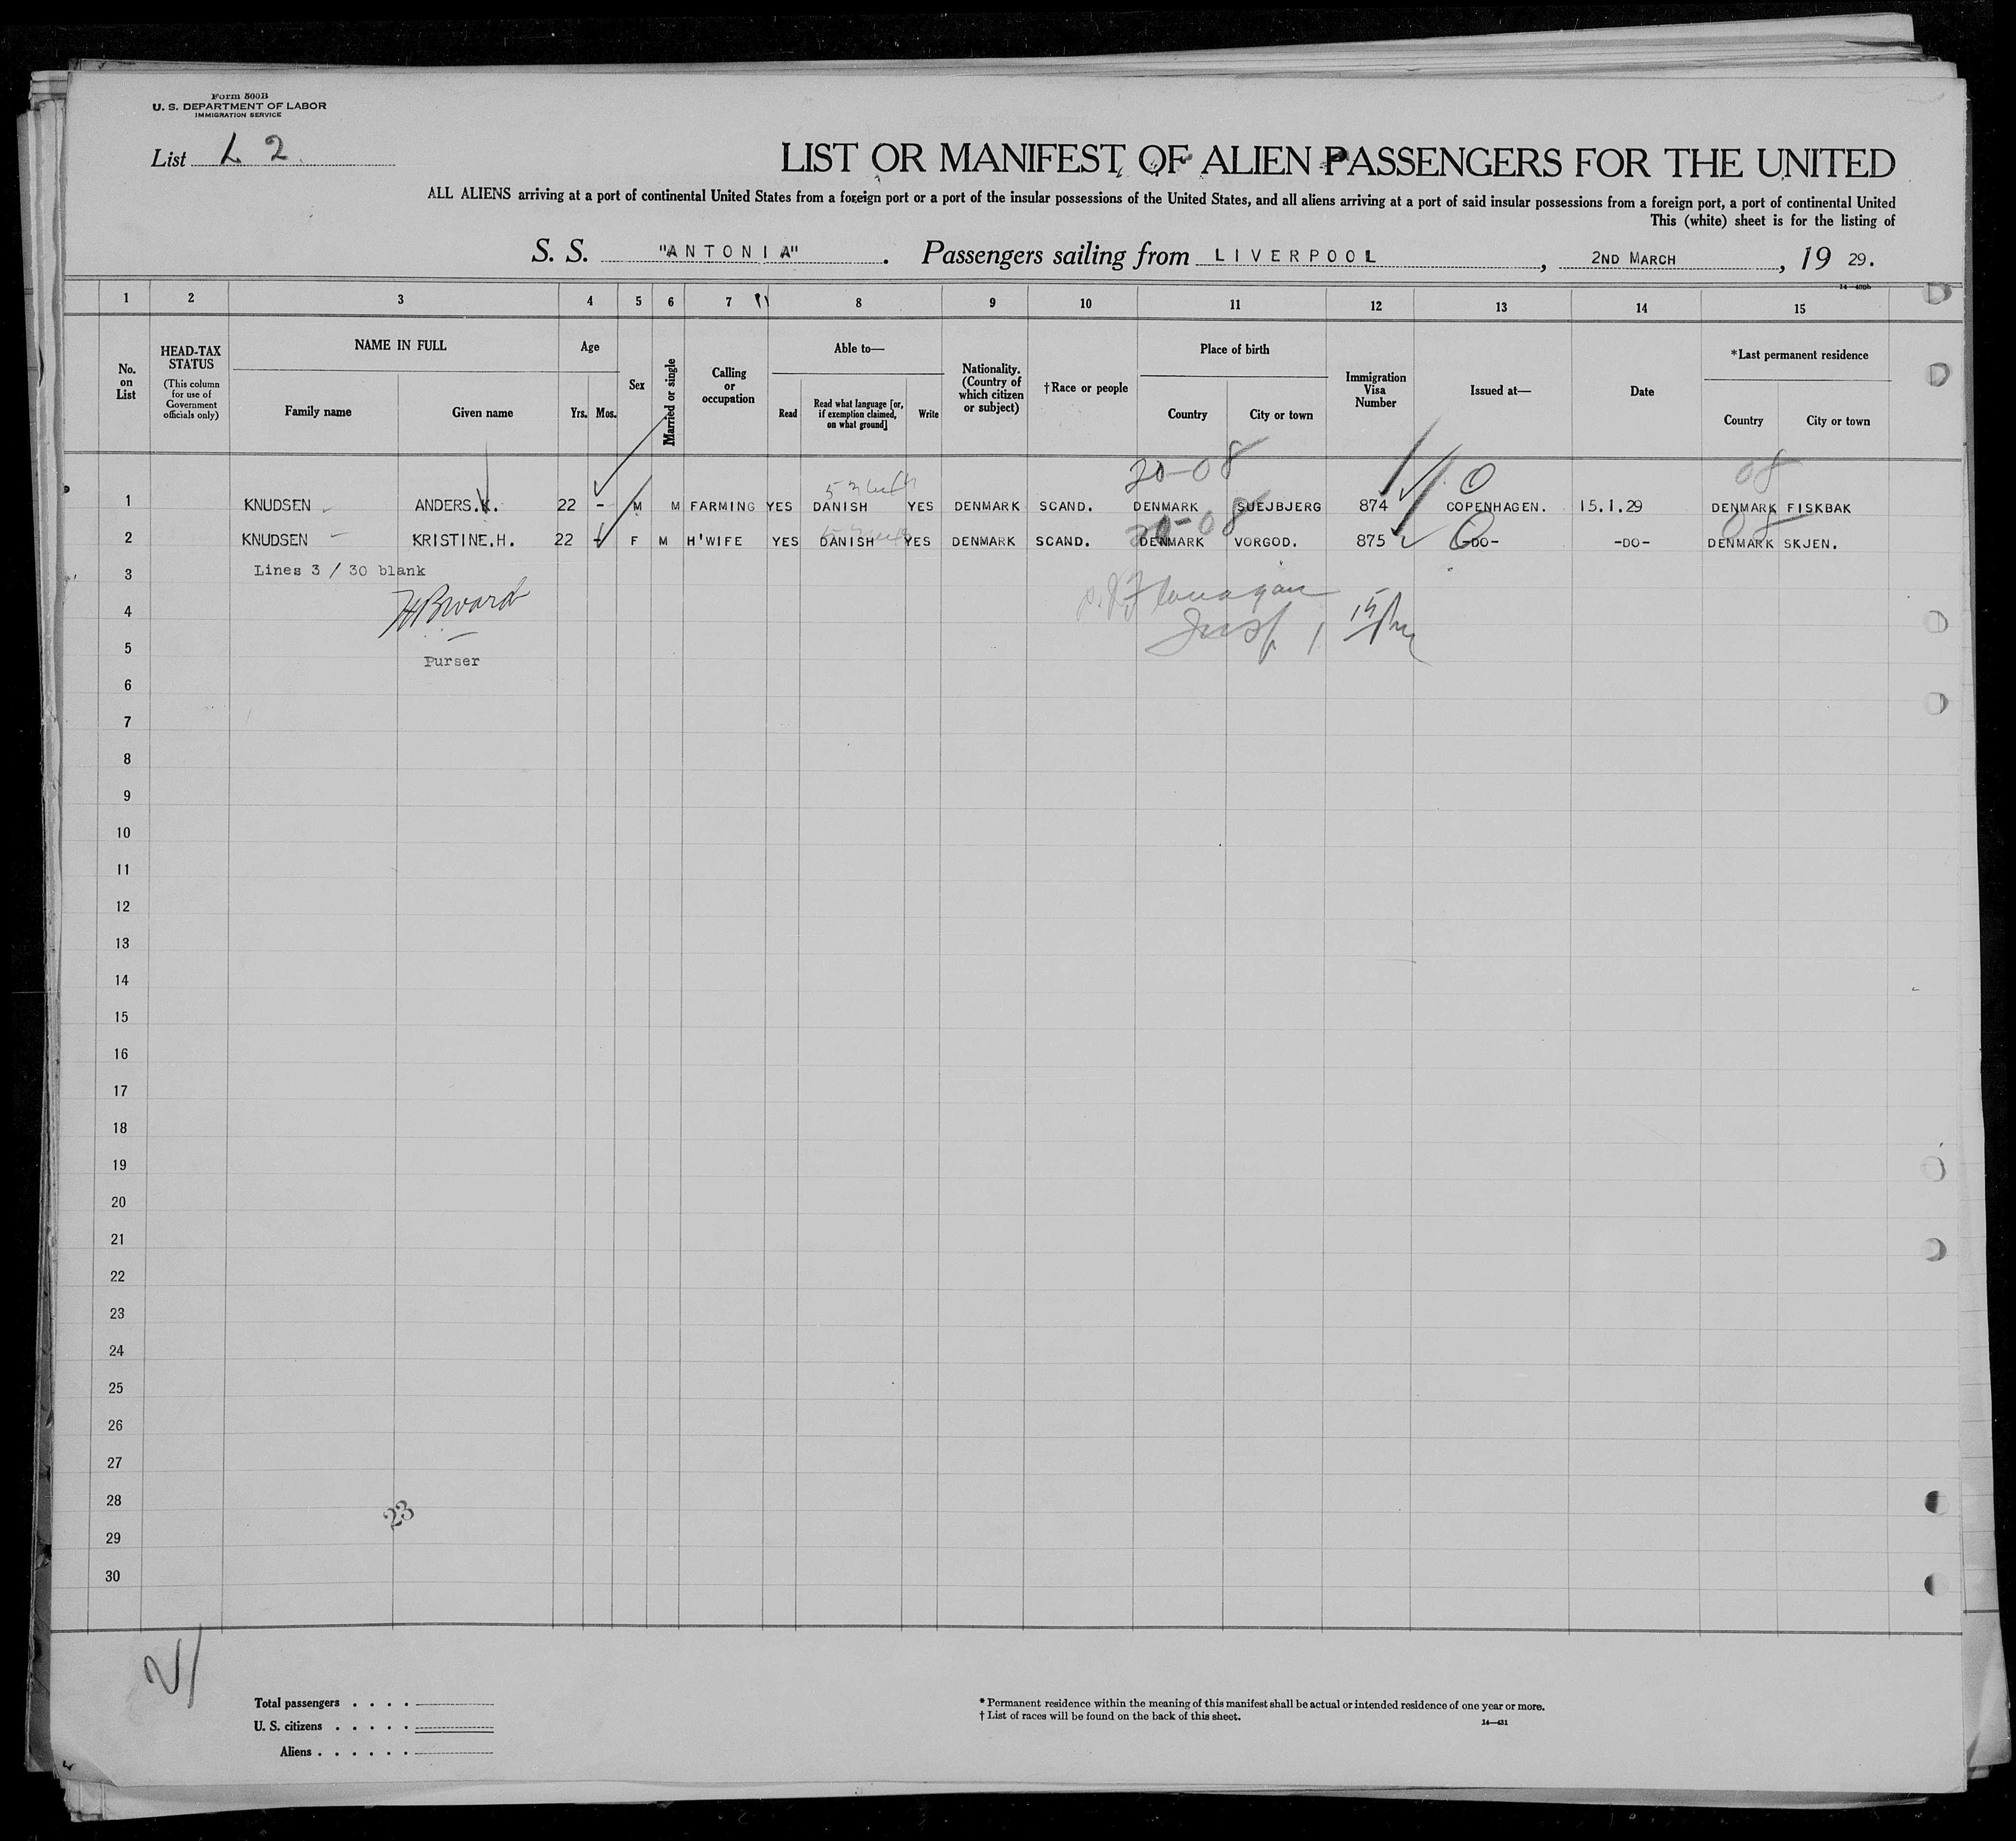 Form 500B
U. S. DEPARTMENT OF LABOR
IMMIGRATION SERVICE
List L 2
LIST OR MANIFEST OF ALIEN PASSENGERS FOR THE UNITED
ALL ALIENS arriving at a port of continental United States from a foreign port or a port of the insular possessions of the United States, and all aliens arriving at a port of said insular possessions from a foreign port, a port of continental United
This (white) sheet is for the listing of
S. S. "ANTONIA". Passengers sailing from LIVERPOOL, 2ND MARCH, 19 29.
1 2 3 4 5 6 7 8 9 10 11 12 13 14 15
No. on List
HEAD-TAX STATUS (This column for use of Government officials only)
NAME IN FULL
Family name
Given name
Age
Yrs. Mos.
Sex
Married or single
Calling or occupation
Able to—
Read
Read what language [or, if exemption claimed, on what ground]
Write
Nationality. (Country of which citizen or subject)
†Race or people
Place of birth
Country
City or town
Immigration Visa Number
Issued at—
Date
*Last permanent residence
Country
City or town
20-08 08
1 KNUDSEN ANDERS.K. 22 - M M FARMING YES DANISH YES DENMARK SCAND. DENMARK SUEJBJERG 874 COPENHAGEN. 15.1.29 DENMARK FISKBAK
20-08 08
2 KNUDSEN KRISTINE.H. 22 - F M H'WIFE YES DANISH YES DENMARK SCAND. DENMARK VORGOD. 875 -DO- -DO- DENMARK SKJEN.
3 Lines 3 / 30 blank
4 HBWard
5 Purser
6
7
8
9
10
11
12
13
14
15
16
17
18
19
20
21
22
23
24
25
26
27
28
23
29
30
Total passengers . . . .
U. S. citizens . . . . .
Aliens . . . . . .
* Permanent residence within the meaning of this manifest shall be actual or intended residence of one year or more.
† List of races will be found on the back of this sheet.
14—431